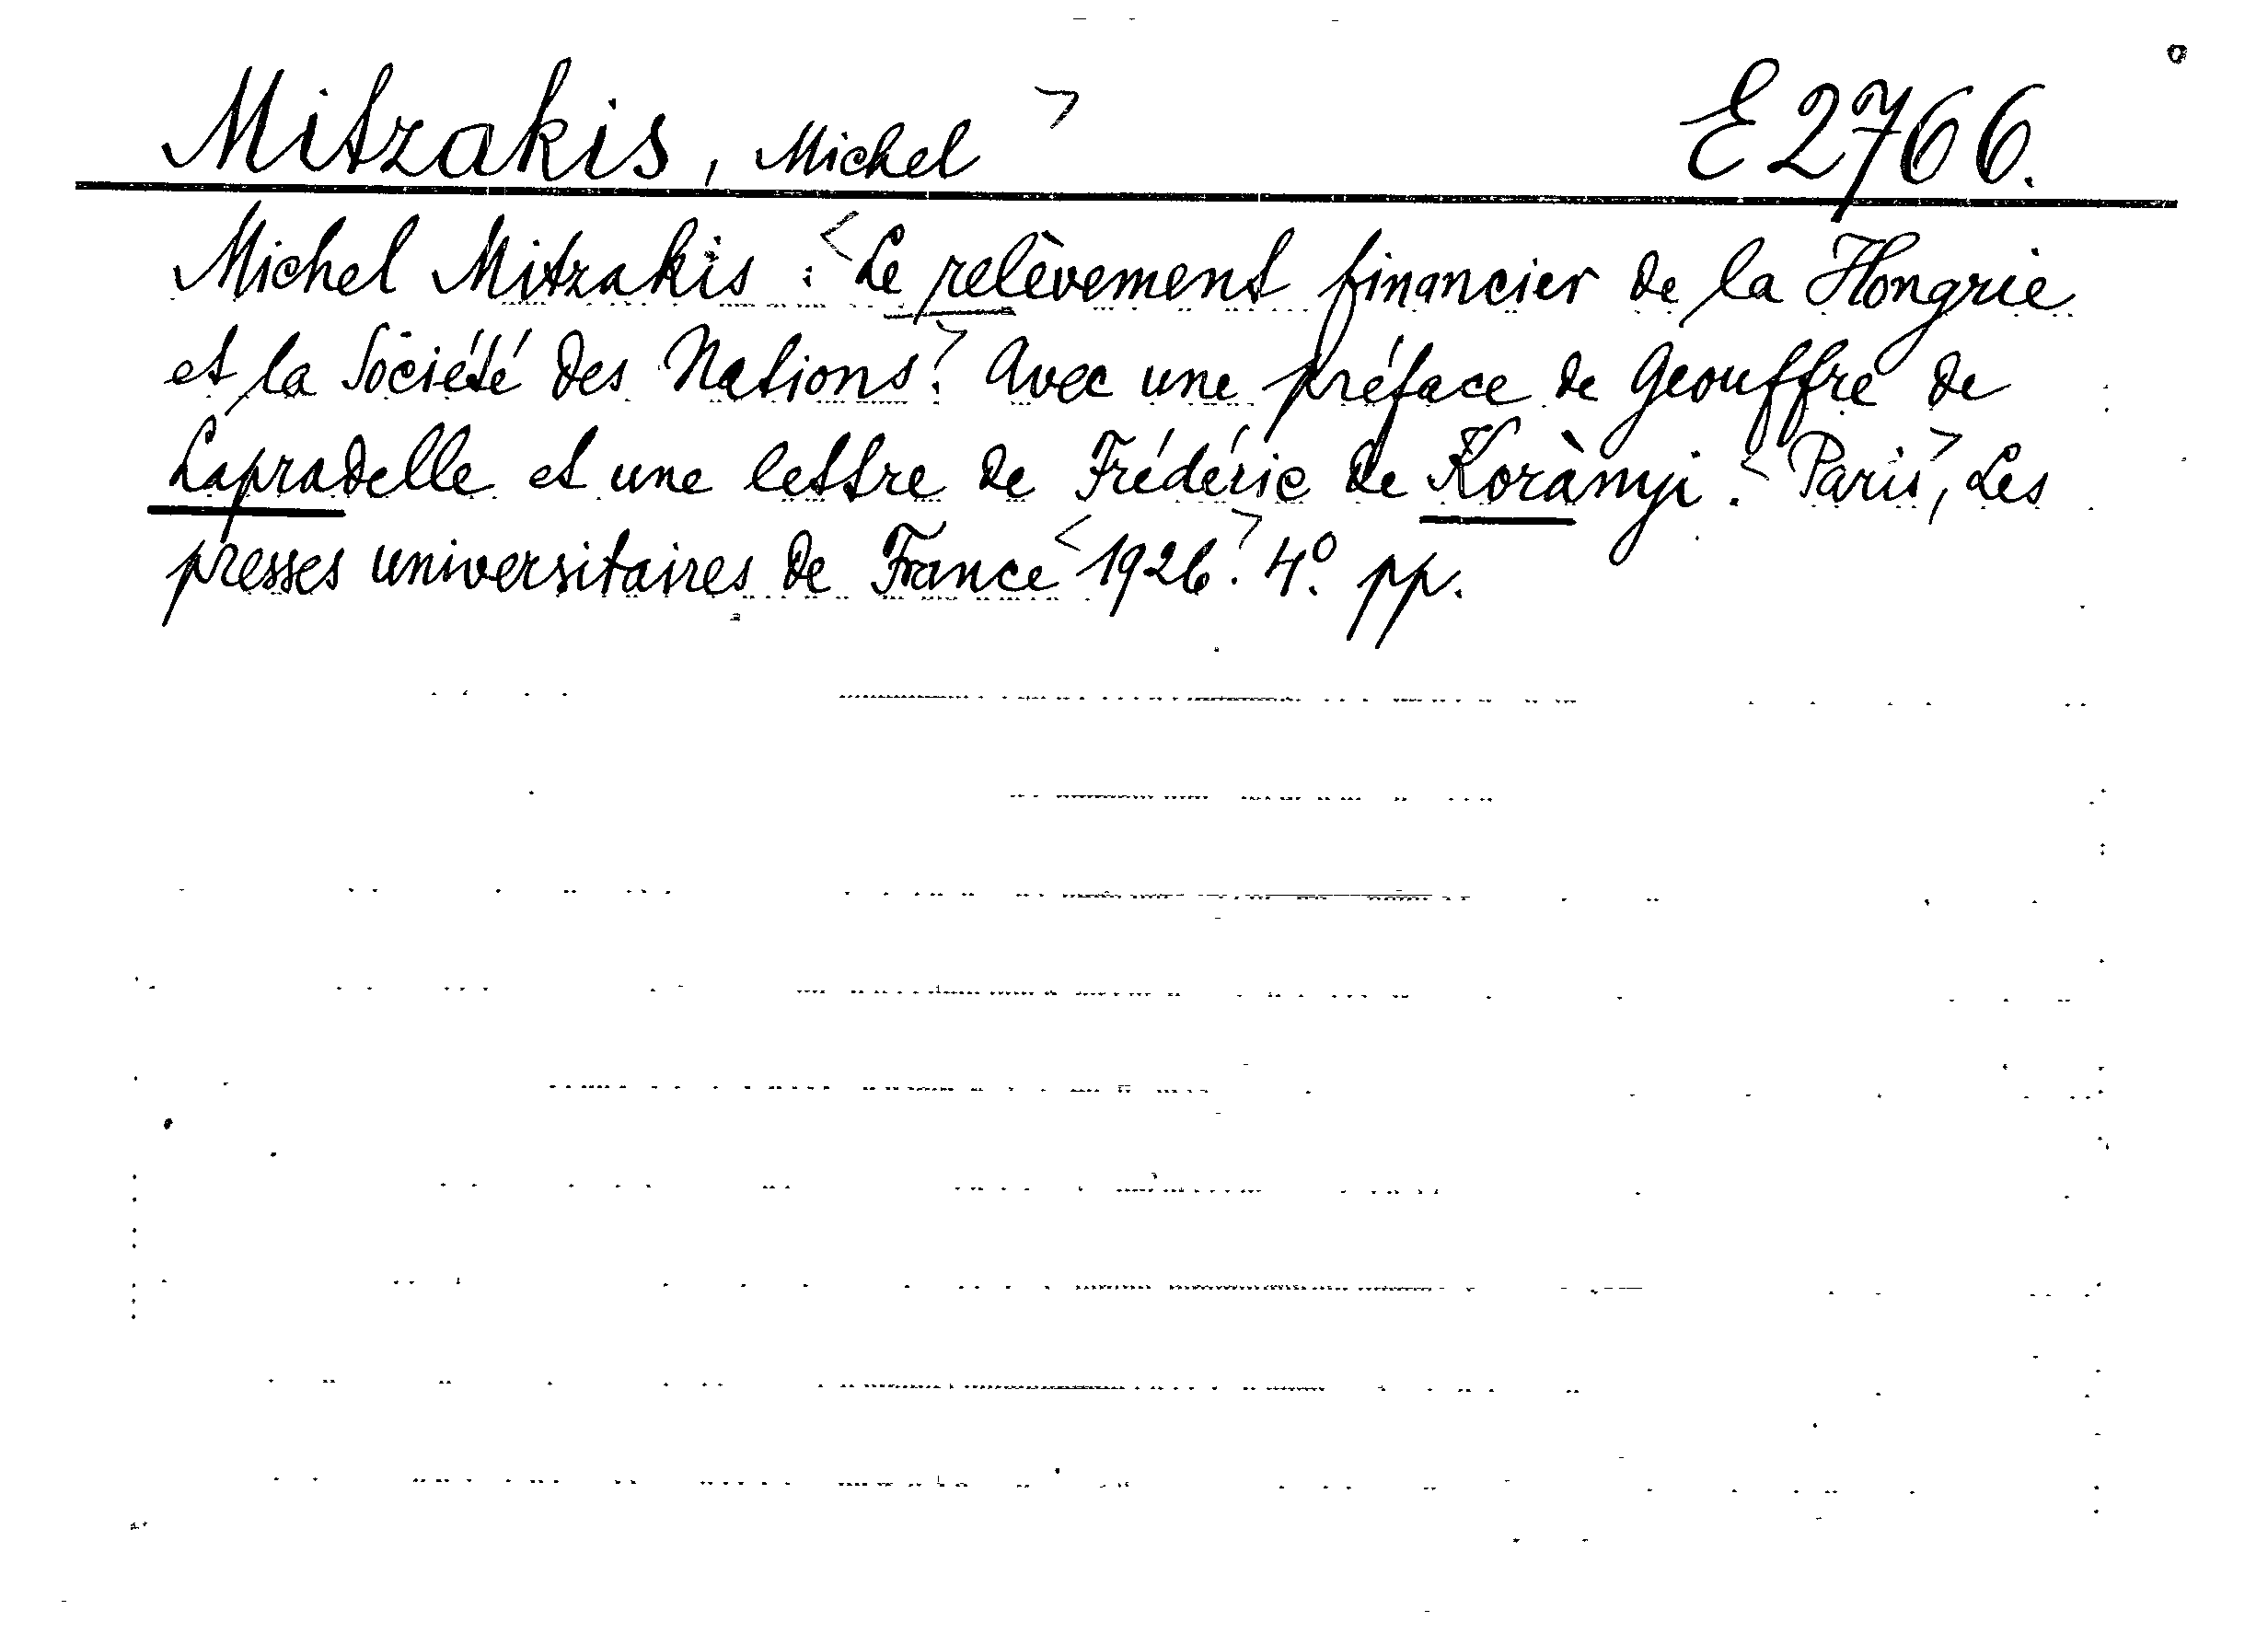 Mitzakis, Michel E 2766.
Michel Mitzakis : Le relèvement financier de la Hongrie
et la Société des Nations. Avec une préface de Geouffre de
Lapradelle et une lettre de Frédéric de Korànyi. Paris, Les
presses universitaires de France 1926. 4° pp.